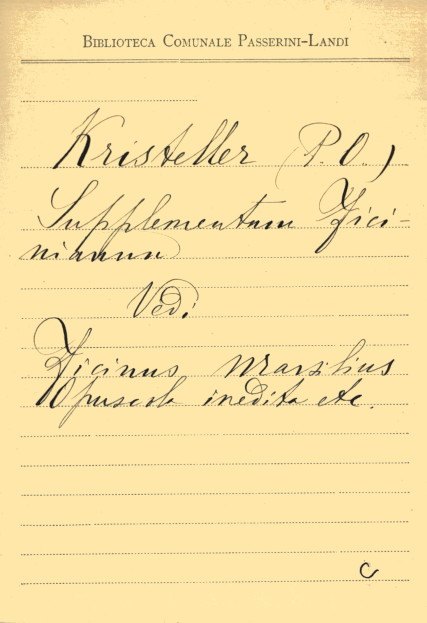 BIBLIOTECA COMUNALE PASSERINI-LANDI
Kristeller (P.O.)
Supplementum Fici-
nianum
Vedi
Ficinus Marsilius
Opuscola inedita etc.
C